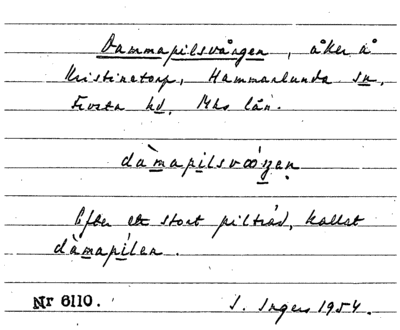 Dammapilsvången, åker å
Kristinetorp, Hammarlunda sn,
Frosta hd, Mhs län.
dàmapilsvåŋen
Efter ett stort pilträd, kallat
dàmapílen.
Nr 6110. I. Ingers 1954.